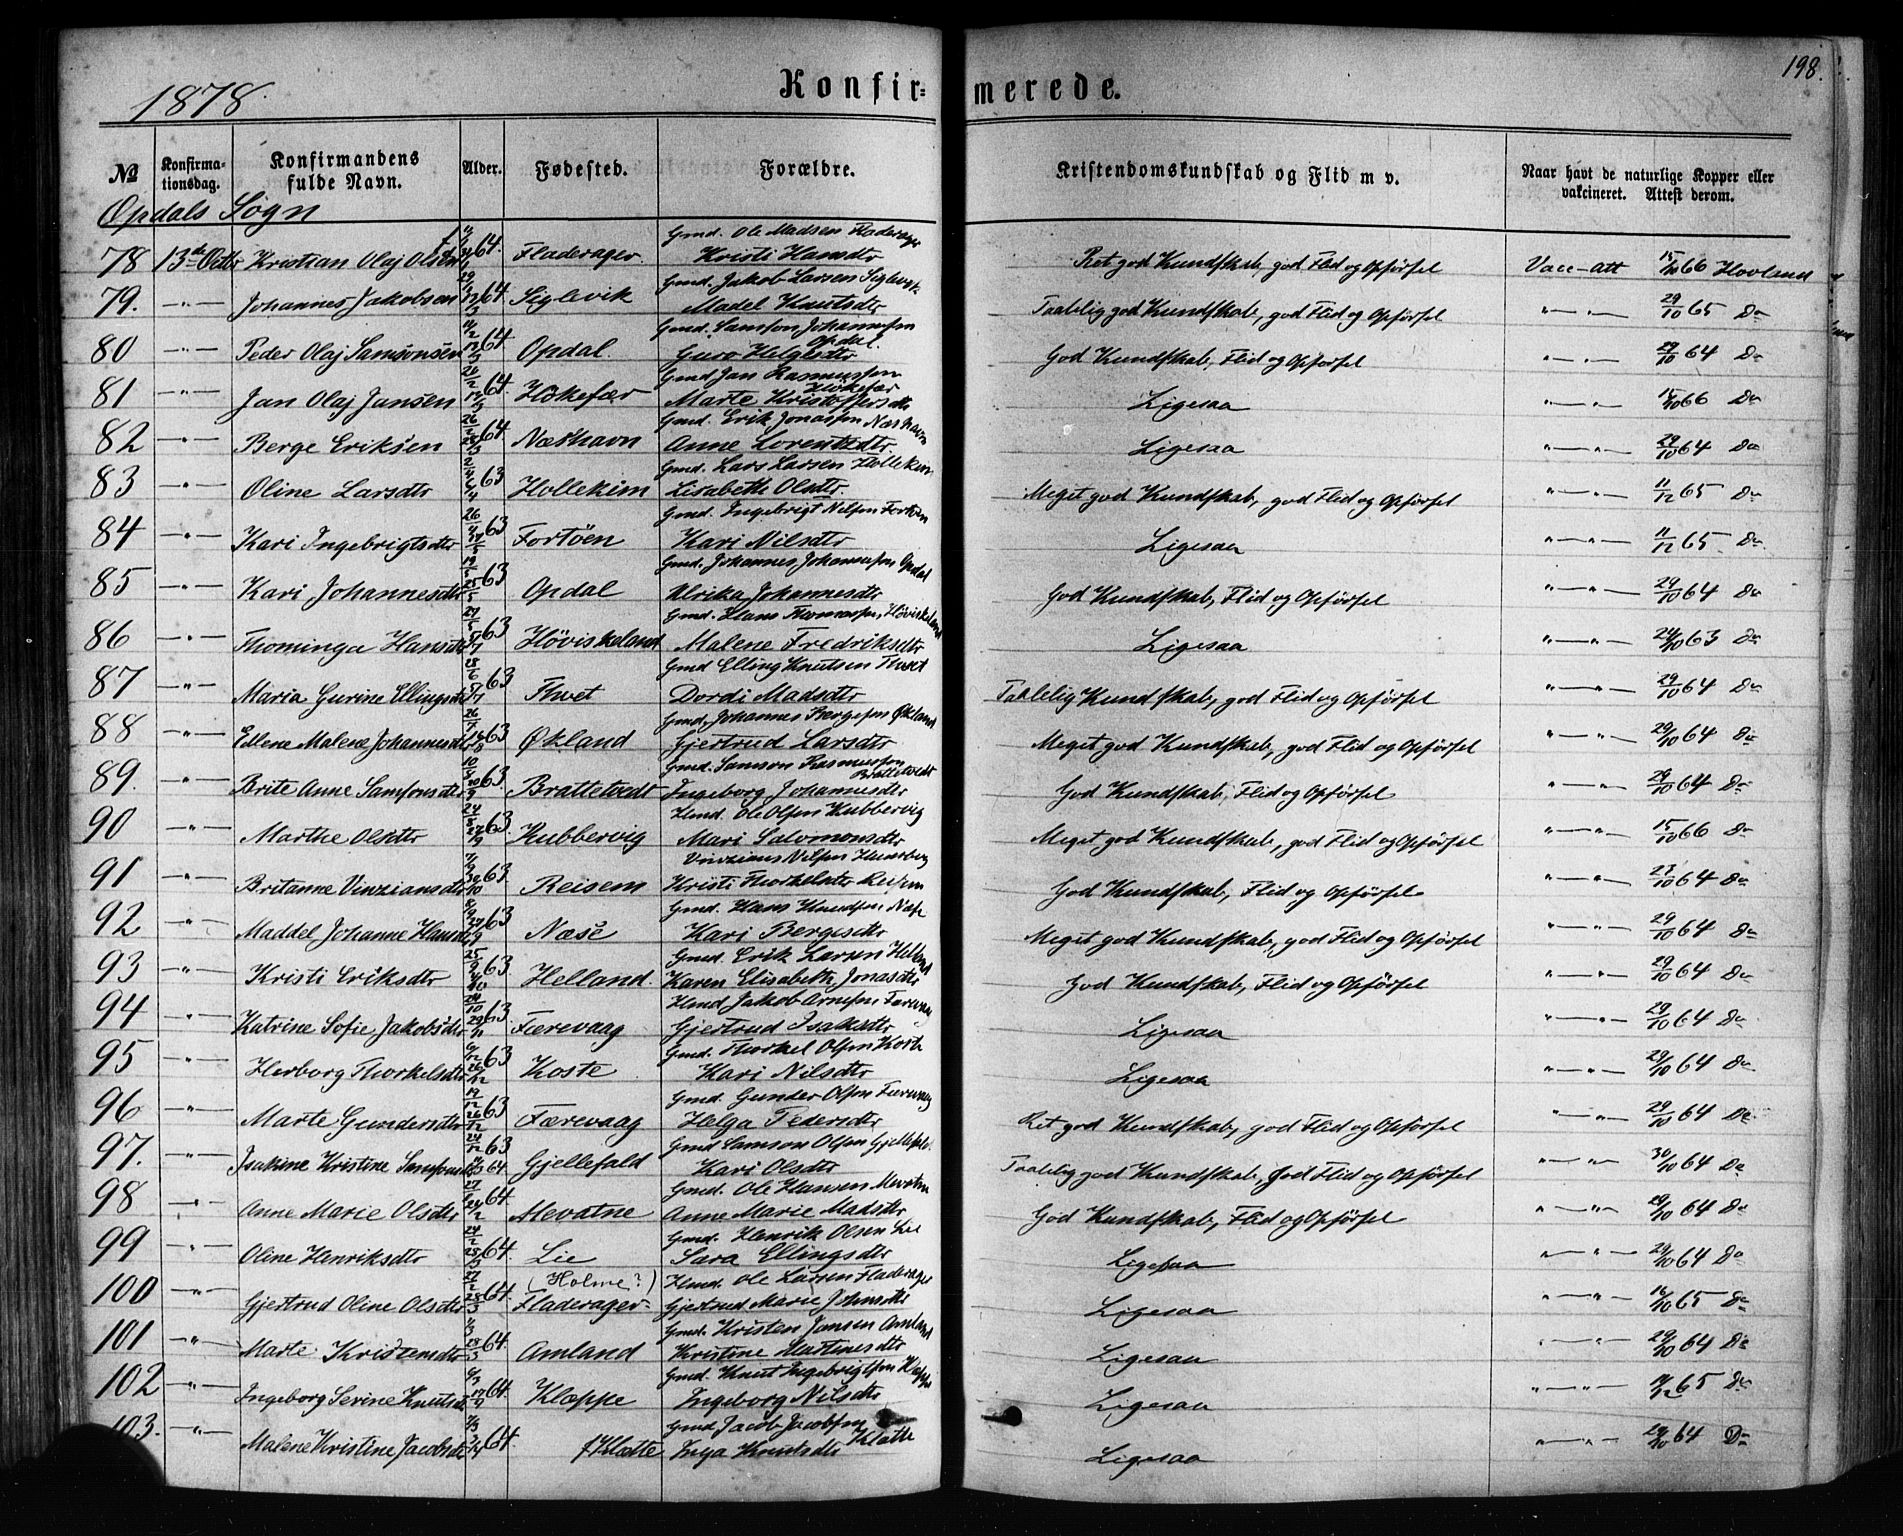 198.
1878.
Konfir- merede.
No
Konfirmationsdag.
Konfirmandens fulde Navn.
Alder.
Fødested.
Forældre.
Kristendomskundskab og Flid m v.
Naar havt de naturlige Kopper eller vakcineret. Attest derom.
Opdals Sogn
Gmd. Ole Madsen Fladerager
78 13de Octbr Kristian Olaj Olsen 64. Fladerager Kristi Hansdtr Ret god Kundskab, god Flid og Opførsel Vacc-att 15/10 66 Hovland
Gmd. Jakob Larsen Siglevik
79. -"- Johannes Jakobsen 64 Siglevik Madel Knutsdtr Taalelig god Kundskab, god Flid og Opførsel "-"- 29/10 65 Do
Gmd. Samson Johannesen Opdal.
80 -"- Peder Olaj Samsonsen 64 Opdal. Guro Helgesdtr God Kundskab, Flid og Opførsel "-"- 29/10 64 Do
Gmd Jan Rasmussen Hökefær
81 -"- Jan Olaj Jansen 64. Hökefær Marte Kristoffersdtr Ligesaa "-"- 15/10 66 Do
Gmd. Erik Jonassen Næshavn
82 -"- Berge Eriksen 64 Næshavn Anne Lorentzdtr. Ligesaa "-"- 29/10 64 Do
Gmd. Lars Larsen Hollekim
83 -"- Oline Larsdtr 63 Hollekim Lisabeth Olsdtr. Meget god Kundskab, god Flid og Opførsel "-"- 11/12 65 Do
Gmd. Ingebrigt Nilsen Fortøen
84 -"- Kari Ingebrigtsdtr 63 Fortöen Kari Nilsdtr Ligesaa "-"- 11/12 65. Do
Gmd. Johannes Johannessen Opdal
85 -"- Kari Johannesdtr 63 Opdal Ulrika Johannesdtr God Kundskab, Flid og Opførsel "-"- 29/10 64 Do
Gmd. Hans Thomassen, Höviskeland
86 -"- Thominga Hansdtr 63 Höviskeland Malene Fredriksdtr Ligesaa "-"- 24/10 63 Do
Gmd Elling Knutsen Thvet
87 -"- Maria Gurine Ellingsdtr 63 Thvet Dordi Madsdtr Taalelig Kundskab, god Flid og Opførsel "-"- 29/10 64 Do
Gmd, Johannes Bergesen Økland
88 -"- Edlene Malene Johannesdtr 63 Økland Gjertrud Larsdtr Meget god Kundskab, god Flid og Opførsel "-"- 29/10 64 Do
Gmd. Samson Rasmussen Brattetvedt
89. -"- Brite Anne Samsonsdtr 63. Brattetvedt Ingeborg Johannesdtr God Kundskab, Flid og Opførsel "-"- 29/10 64 Do
Hmd. Ole Olsen Kubbervig
90 -"- Marthe Olsdtr 63 Kubbervig Mari Salomonsdtr Meget god Kundskab, god Flid og Opførsel "-"- 15/10 66 Do
Vinzians Nilsen
91 -"- Britanne Vinziansdtr 63 Reisem Kristi Thorkelsdtr Reisem God Kundskab, Flid og Opførsel "-"- 27/10 64 Do
Gmd. Hans Knudsen, Næse
92 -"- Maddel Johanne Hansd 63 Næse Kari Bergesdtr Meget god Kundskab, god Flid og Opførsel "-"- 29/10 64 Do
Gmd. Erik Larsen Helland
93 -"- Kristi Eriksdtr 63 Helland. Karen Elisabeth Jonasdtr God Kundskab, Flid og Opførsel "-"- 29/10 64 Do
Hmd Jakob Arnesen Færevaag
94 -"- Katrine Sofie Jakobsdtr 63 Færevaag Gjertrud Isaksdtr Ligesaa "-"- 29/10 64 Do
Gmd. Thorkel Olsen Koste
95 -"- Herborg Thorkelsdtr 63 Koste Kari Nilsdtr Ligesaa "-"- 29/10 64 Do
Gmd. Gunder Olsen Færevaag
96 -"- Marte Gundersdtr 63 Færevaag Helga Pedersdtr Ret god Kundskab, god Flid og Opførsel "-"- 29/10 64 Do
Gmd Samson Olsen Gjellefald
97. -"- Isakine Kristine Samsonsd 63 64 Gjellefald Kari Olsdtr Taalelig god Kundskab, god Flid og Opførsel "-"- 30/10 64 Do
Gmd. Ole Hansen Mevatne
98 -"- Anne Marie Olsdtr 64 Mevatne Anne Marie Madsdtr God Kundskab, Flid og Opførsel "-"- 29/10 64 Do
Gmd. Henrik Olsen Lie
99 -"- Oline Henriksdtr 64. Lie Sara Ellingsdtr Ligesaa "-"- 29/10 64 Do
(Holme?) Hmd. Ole Larsen Fladerager
100 -"- Gjertrud Oline Olsdtr 64. Fladerager Gjertrud Marie Johnsdtr Ligesaa "-"- 16/10 65 Do
Gmd. Kristen Jansen Amland
101 -"- Marte Kristensdtr 64. Amland Kristine Martinesdtr Ligesaa "-"- 29/10 64 Do
Gmd. Knut Ingebrigtsen Kleppe
102 -"- Ingeborg Serine Knutsd 64. Kleppe Ingeborg Nilsdtr Ligesaa "-"- 11/12 65 Do
Gmd Jacob Jacobsen Klatte
103. -"- Malene Kristine Jacobsdtr 64. Klætte Inga Knutsdtr Ligesaa "-"- 29/10 64 Do